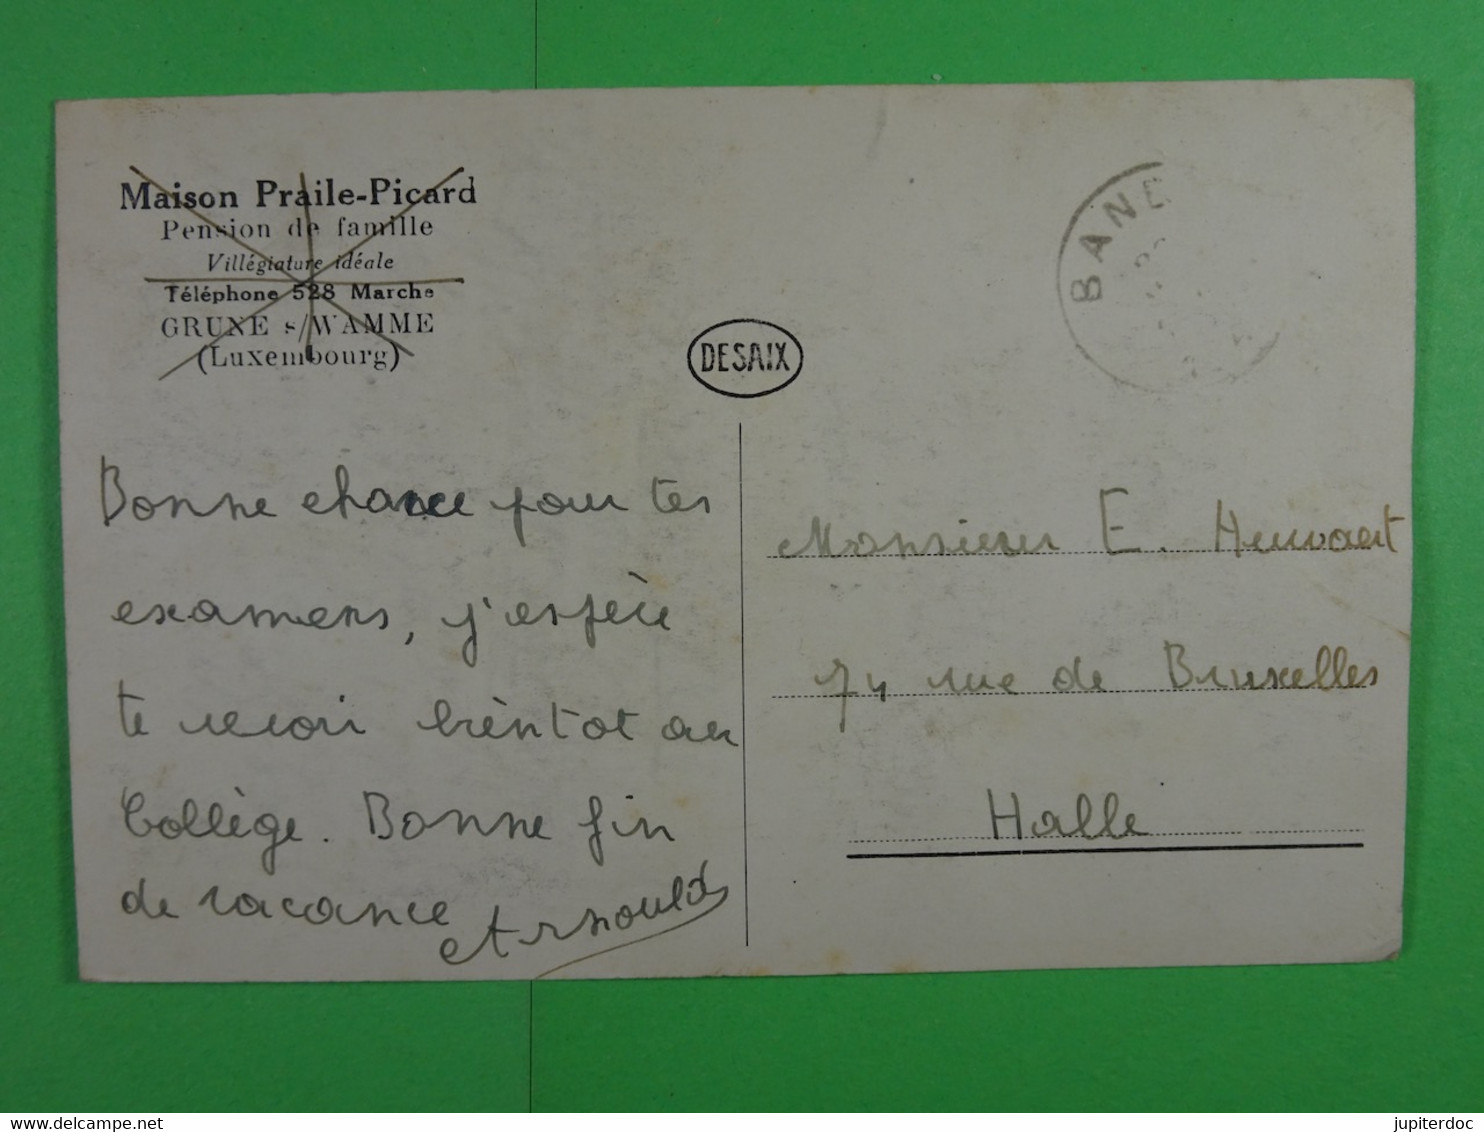 Maison Praile-Picard
Pension de famille
Villégiature idéale
Téléphone 528 Marche
GRUNE s/WAMME
(Luxembourg)
DESAIX
BANE
Bonne chance pour tes
examens, j'espère
te revoir bientot au
Collège. Bonne fin
de vacance
Arnould
Monsieur E.
74 rue de Bruxelles
Halle
jupiterdoc